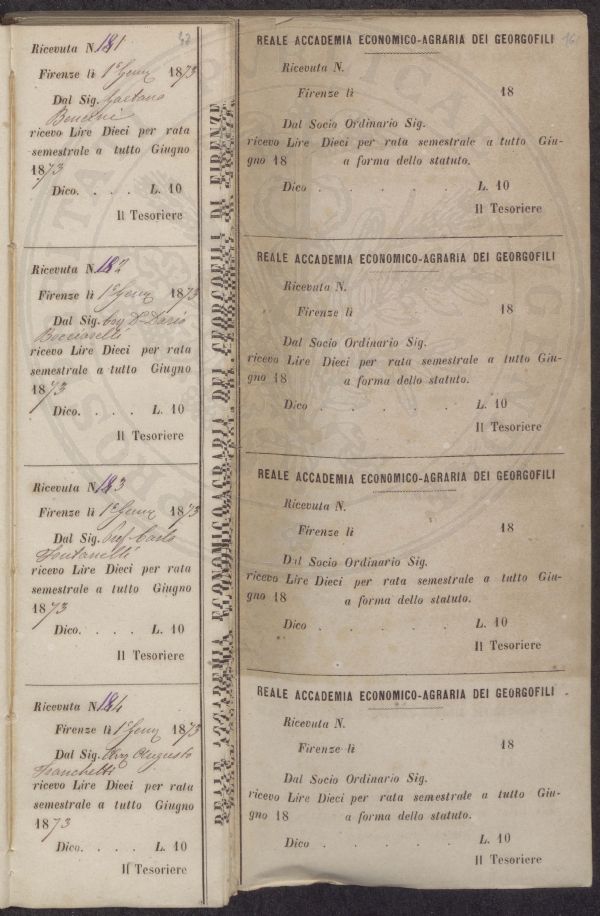 42
Ricevuta N. 181
Firenze li 1° Genn 1873
Dal Sig. Gaetano
Bencini
ricevo Lire Dieci per rata
semestrale a tutto Giugno
1873
Dico. . . . L. 10
Il Tesoriere
Ricevuta N. 182
Firenze li 1° Genn 1873
Dal Sig. Dr Dario
ricevo Lire Dieci per rata
semestrale a tutto Giugno
1873
Dico. . . . L. 10
Il Tesoriere
Ricevuta N. 183
Firenze li 1° Genn 1873
Dal Sig. Prof Carlo
Fontanelli
ricevo Lire Dieci per rata
semestrale a tutto Giugno
1873
Dico. . . . L. 10
Il Tesoriere
Ricevuta N. 184
Firenze li 1° Genn 1873
Dal Sig. Avv Augusto
Franchetti
ricevo Lire Dieci per rata
semestrale a tutto Giugno
1873
Dico. . . . L. 10
Il Tesoriere
REALE ACCADEMIA ECONOMICO-AGRARIA DEI GEORGOFILI DI FIRENZE
REALE ACCADEMIA ECONOMICO-AGRARIA DEI GEORGOFILI
Ricevuta N.
Firenze li 18
Dal Socio Ordinario Sig.
ricevo Lire Dieci per rata semestrale a tutto Giu-
gno 18 a forma dello statuto.
Dico . . . . . L. 10
Il Tesoriere
REALE ACCADEMIA ECONOMICO-AGRARIA DEI GEORGOFILI
Ricevuta N.
Firenze li 18
Dal Socio Ordinario Sig.
ricevo Lire Dieci per rata semestrale a tutto Giu-
gno 18 a forma dello statuto.
Dico . . . . . L. 10
Il Tesoriere
REALE ACCADEMIA ECONOMICO-AGRARIA DEI GEORGOFILI
Ricevuta N.
Firenze li 18
Dal Socio Ordinario Sig.
ricevo Lire Dieci per rata semestrale a tutto Giu-
gno 18 a forma dello statuto.
Dico . . . . . L. 10
Il Tesoriere
REALE ACCADEMIA ECONOMICO-AGRARIA DEI GEORGOFILI
Ricevuta N.
Firenze li 18
Dal Socio Ordinario Sig.
ricevo Lire Dieci per rata semestrale a tutto Giu-
gno 18 a forma dello statuto.
Dico . . . . . L. 10
Il Tesoriere